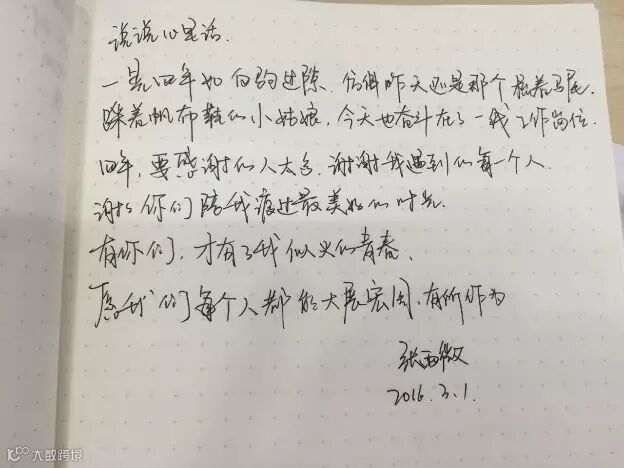 说说心里话.
一晃四年如白驹过隙、仿佛昨天还是那个扎着马尾、
踩着帆布鞋的小姑娘，今天也奋斗在了一线工作岗位.
四年，要感谢的人太多、谢谢我遇到的每一个人.
谢谢你们陪我渡过最美好的时光.
有你们，才有了我似火的青春.
愿我们每个人都能大展宏图、有所作为
张西薇
2016.3.1.
大数跨境